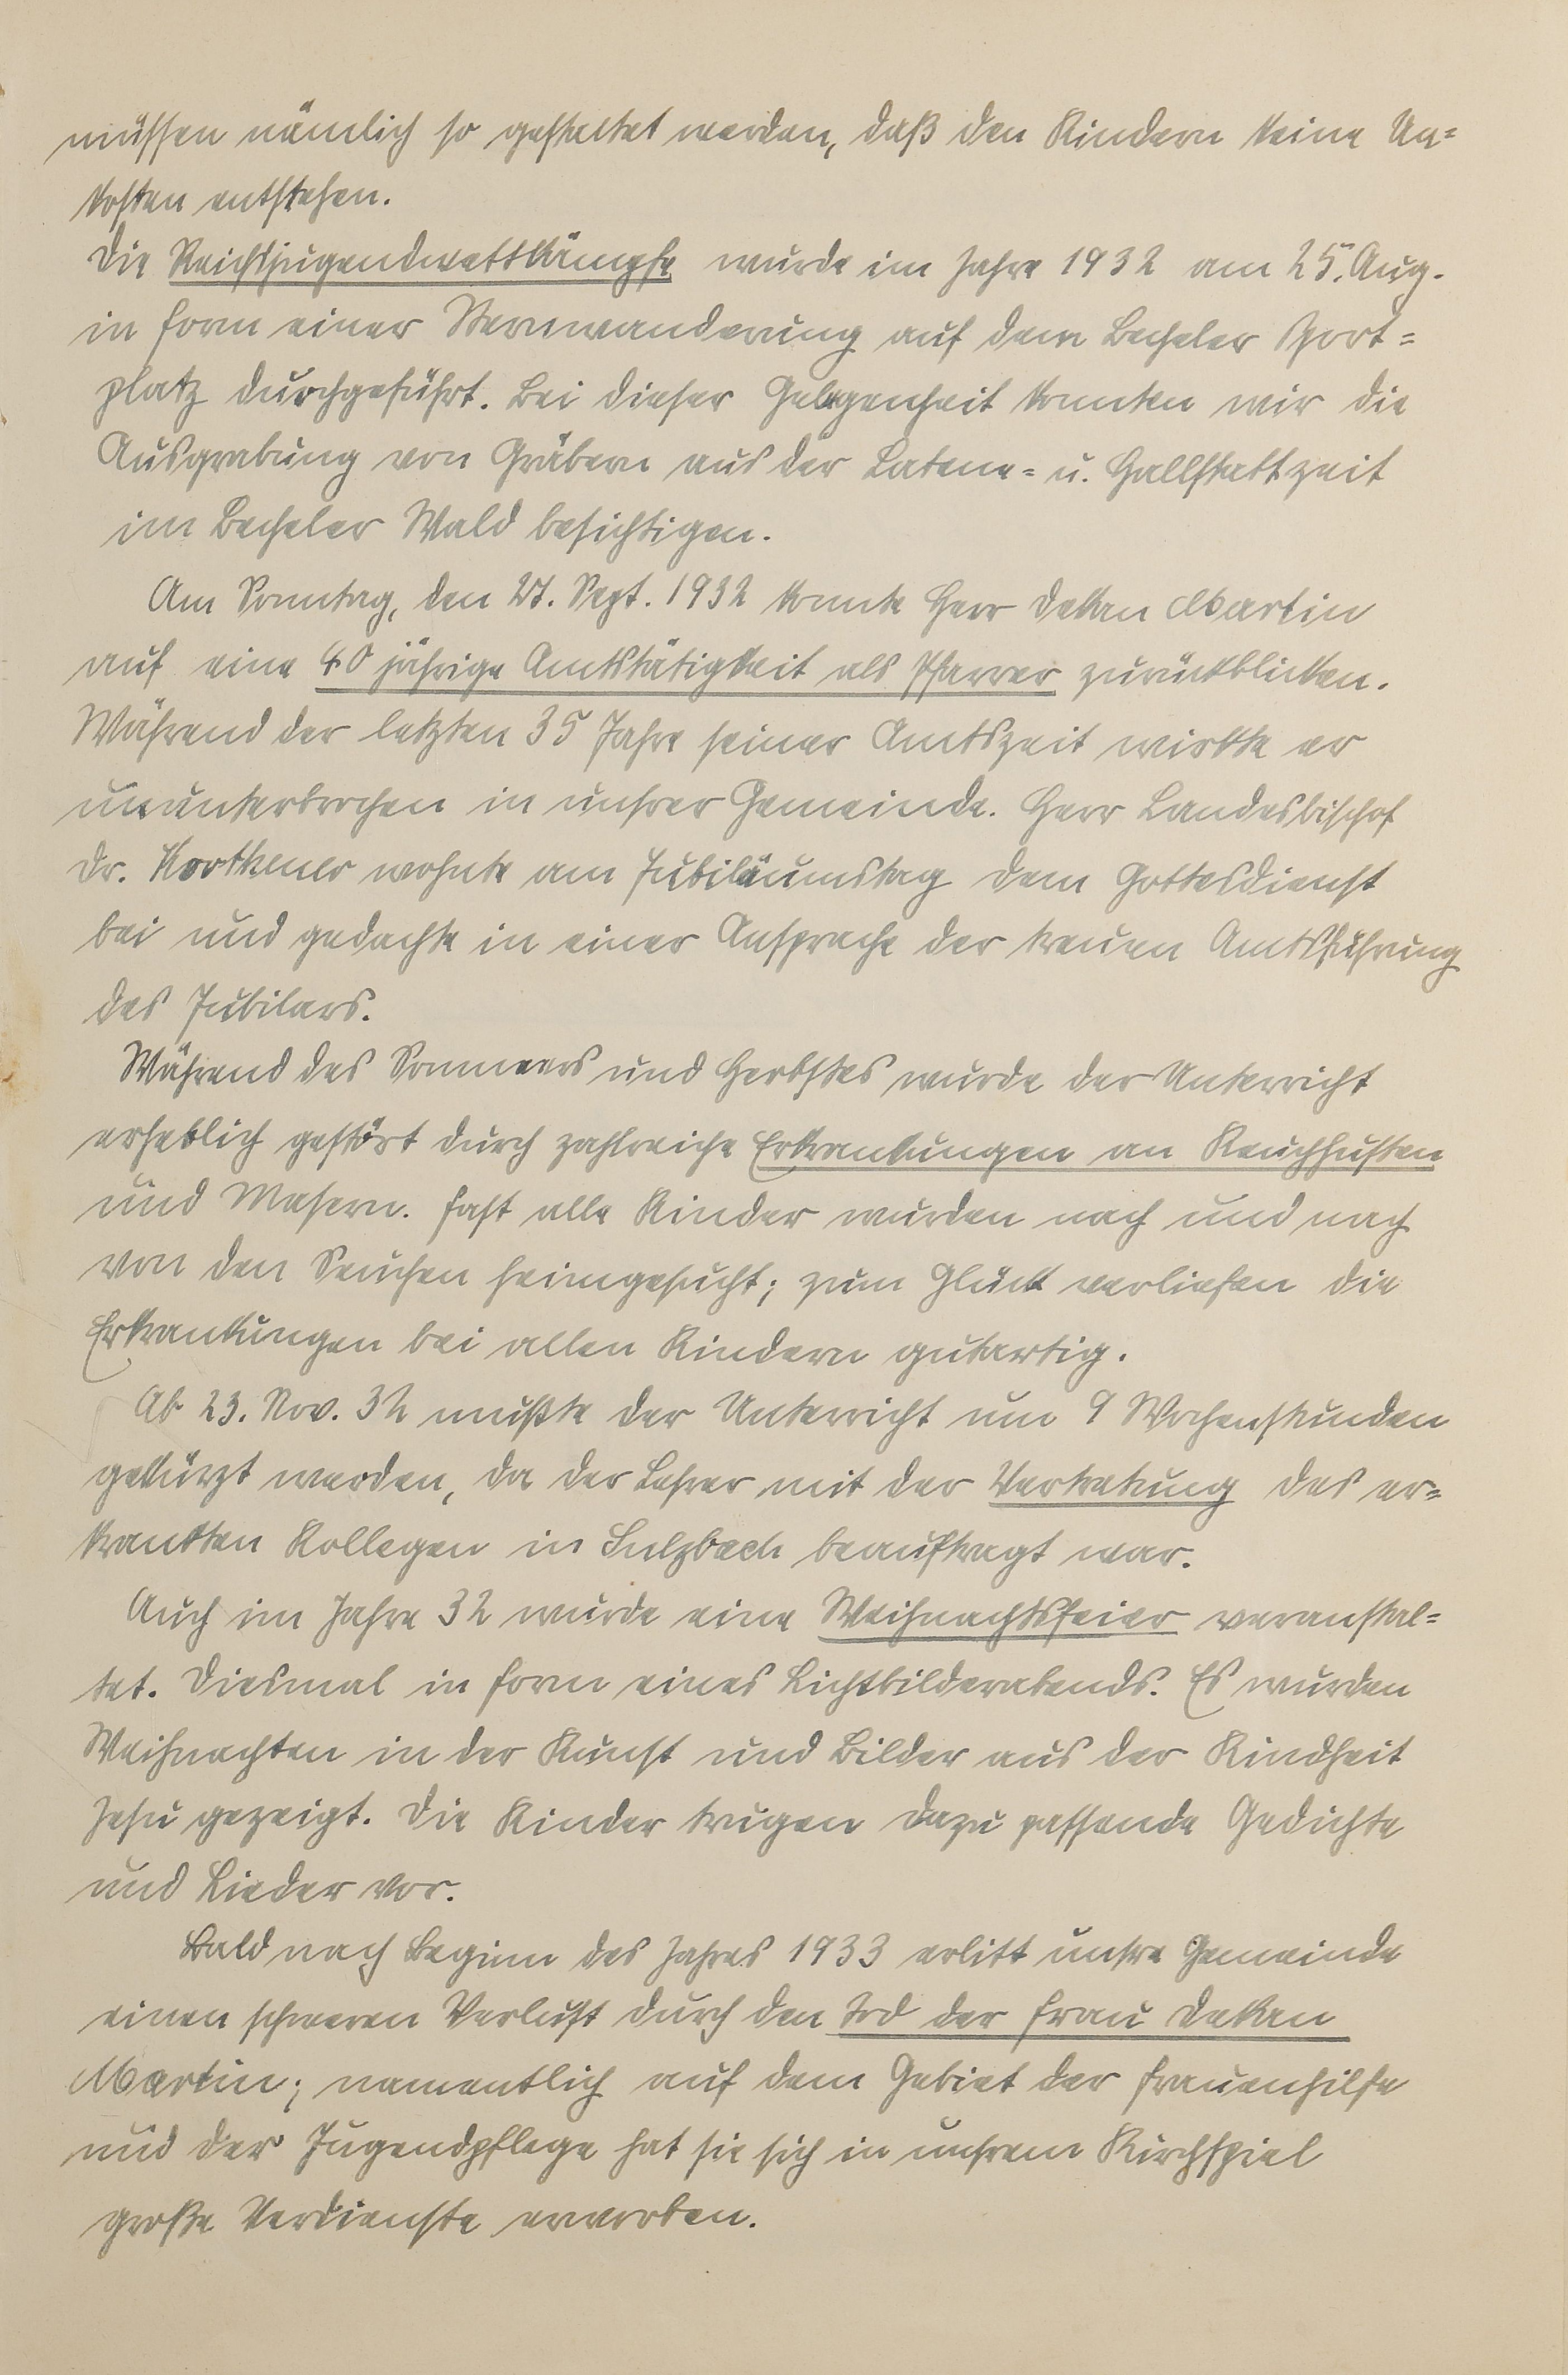 müssen nämlich so gestaltet werden, daß den Kindern keine Un=
kosten entstehen.
Die Reichsjugendwettkämpfe wurde im Jahre 1932 am 25. Aug.
in Form einer Sternwanderung auf dem Becheler Sport=
platz durchgeführt. Bei dieser Gelegenheit konnten wir die
Ausgrabung von Gräbern aus der Latene= u. Hallstattzeit
im Becheler Wald besichtigen.
Am Sonntag, den 27. Sept. 1932 konnte Herr Dekan Martin
auf eine 40 jährige Amtstätigkeit als Pfarrer zurückblicken.
Während der letzten 35 Jahre seiner Amtszeit wirkte er
ununterbrochen in unsrer Gemeinde. Herr Landesbischof
Dr. Kortheuer wohnte am Jubiläumstag dem Gottesdienst
bei und gedachte in einer Ansprache der treuen Amtsführung
des Jubilars.
Während des Sommers und Herbstes wurde der Unterricht
erheblich gestört durch zahlreiche Erkrankungen an Keuchhusten
und Masern. Fast alle Kinder wurden nach und nach
von den Seuchen heimgesucht; zum Glück verliefen die
Erkrankungen bei allen Kindern gutartig.
Ab 23. Nov. 32 mußte der Unterricht um 9 Wochenstunden
gekürzt werden, da der Lehrer mit der Vertretung des er=
krankten Kollegen in Sulzbach beauftragt war.
Auch im Jahre 32 wurde eine Weihnachtsfeier veranstal=
tet. Diesmal in Form eines Lichtbilderabends. Es wurden
Weihnachten in der Kunst und Bilder aus der Kindheit
Jesu gezeigt. Die Kinder trugen dazu passende Gedichte
und Lieder vor.
Bald nach Beginn des Jahres 1933 erlitt unsre Gemeinde
einen schweren Verlust durch den Tod der Frau Dekan
Martin; namentlich auf dem Gebiet der Frauenhilfe
und der Jugendpflege hat sie sich in unsrem Kirchspiel
große Verdienste erworben.